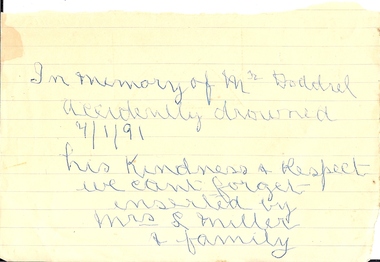 In memory of Mr Doddrel
accidently drowned
7/1/91
his Kindness & Respect
we cant forget
inserted by
Mrs L Miller
& family